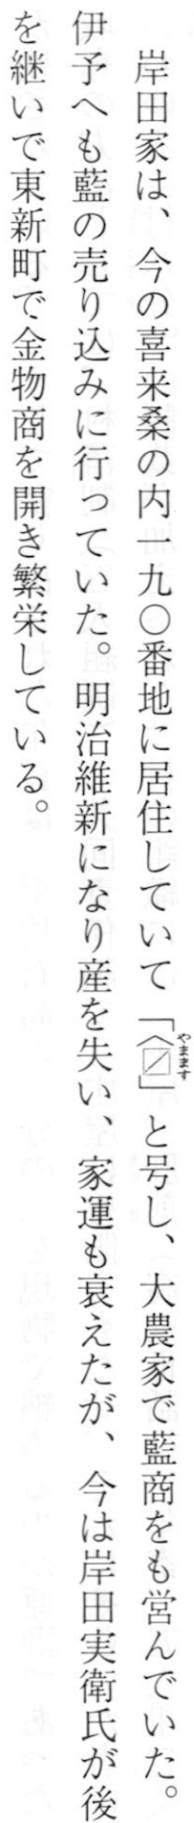 岸田家は、今の喜来桑の内一九〇番地に居住していて「〼」と号し、大農家で藍商をも営んでいた。
やまます
伊予へも藍の売り込みに行っていた。明治維新になり産を失い、家運も衰えたが、今は岸田実衛氏が後
を継いで東新町で金物商を開き繁栄している。